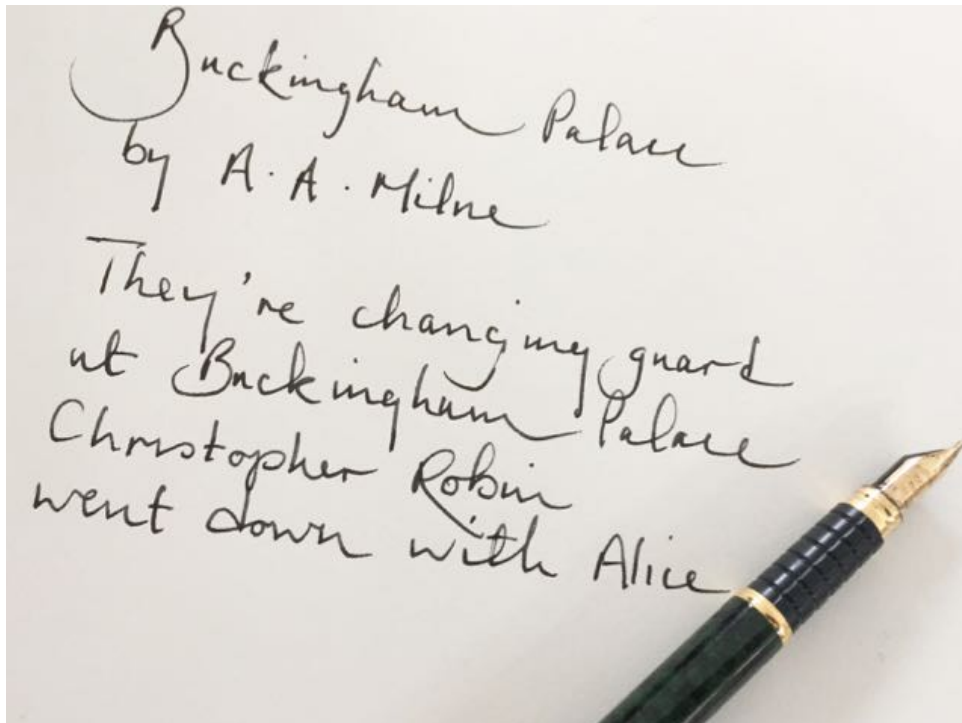 Buckingham Palace
by A.A. Milne
They're changing guard
at Buckingham Palace
Christopher Robin
went down with Alice